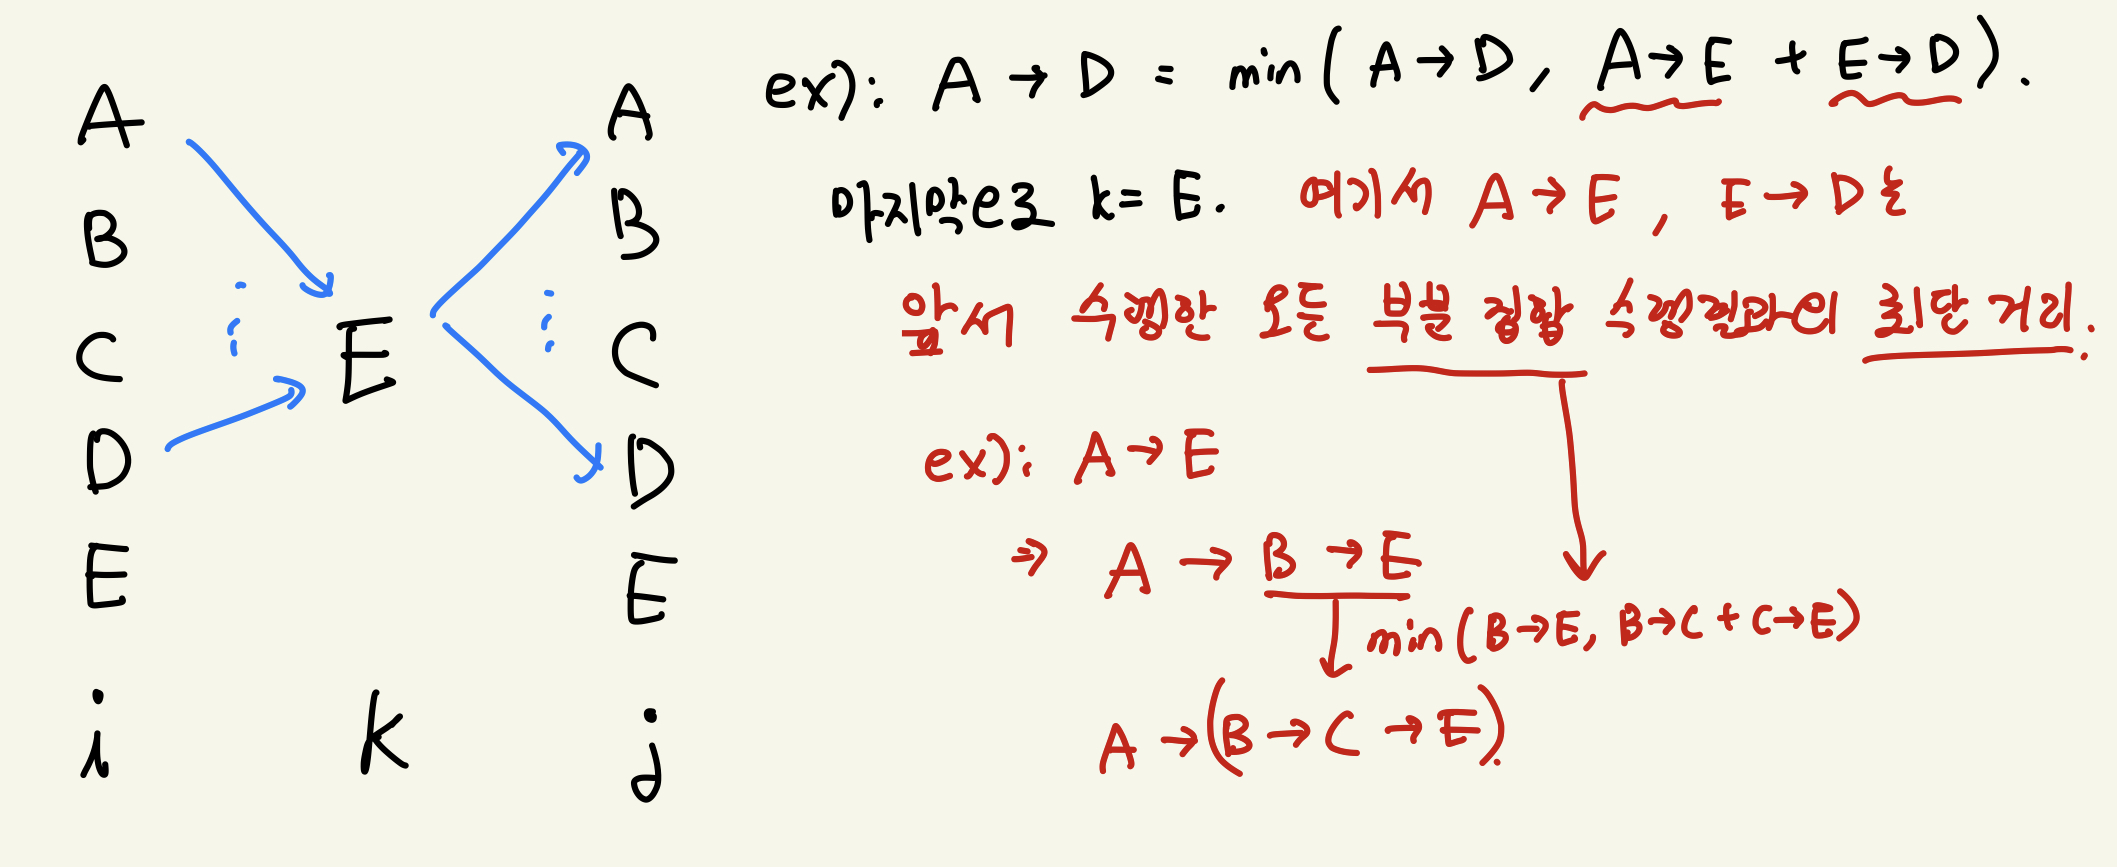 A
B
C
D
E
i
E
k
A
B
C
D
E
j
ex): A → D = min( A → D, A → E + E → D ).
마지막으로 k = E. 여기서 A → E , E → D 는
앞서 수행한 모든 부분 경합 수행결과의 최단 거리.
ex): A → E
⇒ A → B → E
min( B → E, B → C + C → E )
A → ( B → C → E ).